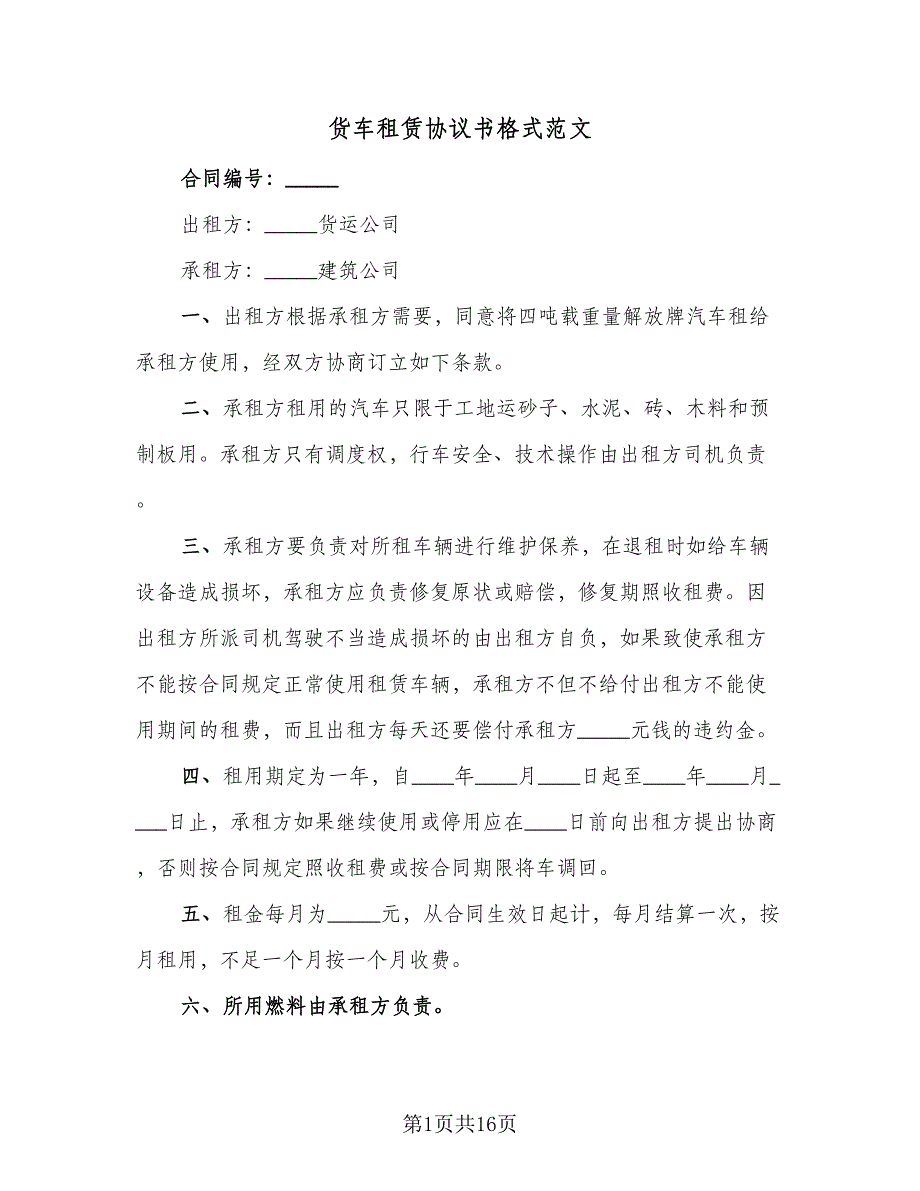 货车租赁协议书格式范文
合同编号：_____
出租方：_____货运公司
承租方：_____建筑公司
一、出租方根据承租方需要，同意将四吨载重量解放牌汽车租给
承租方使用，经双方协商订立如下条款。
二、承租方租用的汽车只限于工地运砂子、水泥、砖、木料和预
制板用。承租方只有调度权，行车安全、技术操作由出租方司机负责
。
三、承租方要负责对所租车辆进行维护保养，在退租时如给车辆
设备造成损坏，承租方应负责修复原状或赔偿，修复期照收租费。因
出租方所派司机驾驶不当造成损坏的由出租方自负，如果致使承租方
不能按合同规定正常使用租赁车辆，承租方不但不给付出租方不能使
用期间的租费，而且出租方每天还要偿付承租方_____元钱的违约金。
四、租用期定为一年，自____年____月____日起至____年____月_
___日止，承租方如果继续使用或停用应在____日前向出租方提出协商
，否则按合同规定照收租费或按合同期限将车调回。
五、租金每月为_____元，从合同生效日起计，每月结算一次，按
月租用，不足一个月按一个月收费。
六、所用燃料由承租方负责。
第1页共16页